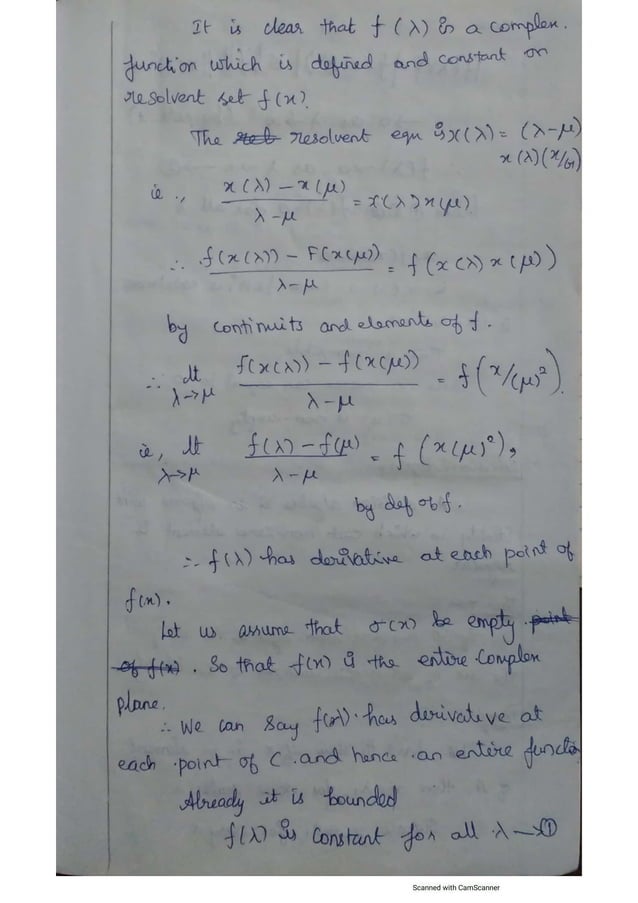 It is clear that f(λ) is a complex.
function which is defined and constant on
resolvent set f(x).
The resolvent eqn is x(λ) = (λ-μ)
x(λ)(x/
ie., x(λ) - x(μ) / λ-μ = x(λ)x(μ)
∴ f(x(λ)) - F(x(μ)) / λ-μ = f(x(λ) x(μ))
by continuits and elements of f.
∴ lt λ→μ f(x(λ)) - f(x(μ)) / λ-μ = f(x/(μ)²).
ie, lt λ→μ f(λ) - f(μ) / λ-μ = f(x(μ)²),
by def of f.
∴ f(λ) has derivative at each point of
f(x).
Let us assume that σ(x) be empty point
of f(x). So that f(x) is the entire complex
plane.
∴ We can say has derivative at
each point of C. and hence an entire function
Already it is bounded
f(λ) is constant for all λ → ①
Scanned with CamScanner